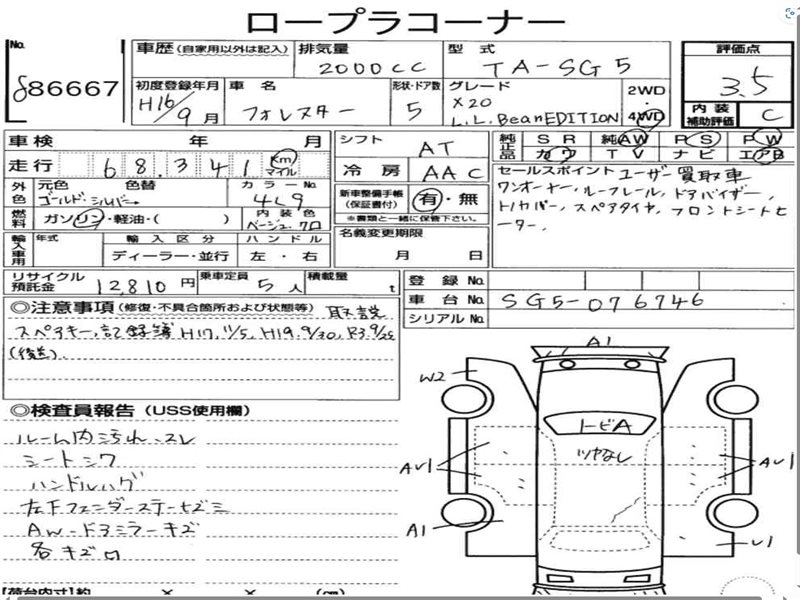 ロープラコーナー
No. 86667
車歴 (自家用以外は記入) 排気量 型式 評価点
2000cc TA-SG5 3.5
初度登録年月 車名 形状・ドア数 グレード 2WD
H16/9月 フォレスター 5 X20 4WD
L.L.BeanEDITION
内装補助評価 C
車検 年 月 シフト AT 純正品 SR 純AW PS PW
カワ TV ナビ エアB
走行 68.341 Km マイル 冷房 AAC
セールスポイント ユーザー買取車
ワンオーナー、ルーフレール、ドアバイザー、
トノカバー、スペアタイヤ、フロントシートヒ
ーター、
外色 元色 色替 カラーNo.
ゴールド・シルバー 4L9
新車整備手帳(保証書付) 有・無
※書類と一緒に保管下さい。
燃料 ガソリン・軽油・( ) 内装色
ベージュ・クロ
名義変更期限
月 日
輸入車用 年式 輸入区分 ハンドル
ディーラー・並行 左・右
リサイクル預託金 12,810円 乗車定員 5人 積載量 t
登録No.
車台No. SG5-076746
シリアルNo.
◎注意事項 (修復・不具合箇所および状態等) 取説
スペアキー、記録簿 H17,11/5, H19.9/30, R3.9/25
(後送).
◎検査員報告 (USS使用欄)
ルーム内汚れ、スレ
シートシワ
ハンドルハゲ
左Fフェンダーステーセズミ
AW・ドアミラーキズ
各キズ凹
A1
W2
トビA
ツヤなし
AU1
AU1
A1
U1
[荷台内寸]約 × × (cm)